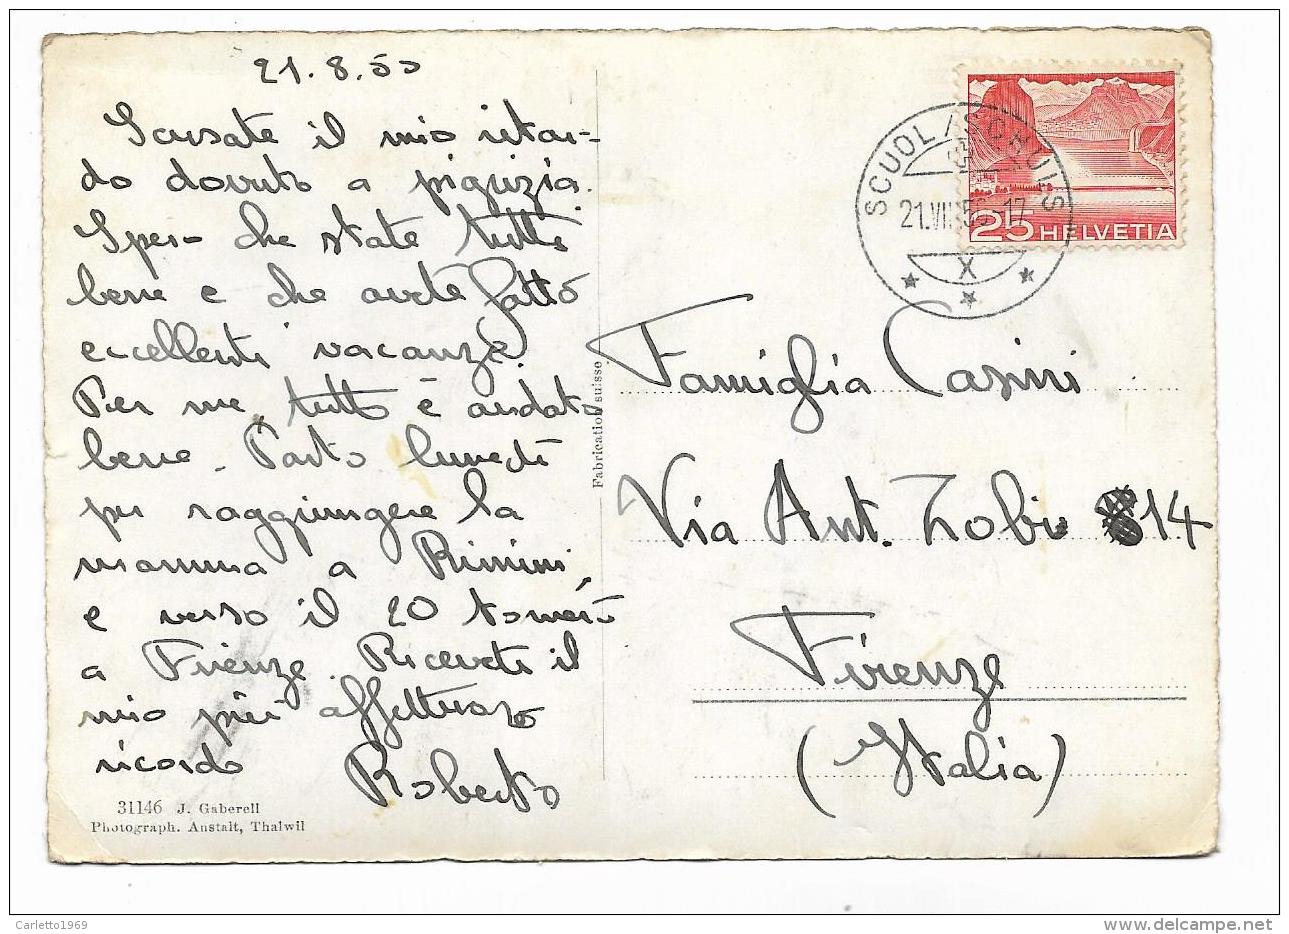 21.8.55
Scusate il mio ritar-
do dovuto a pigrizia.
Spero che state tutti
bene e che avete fatto
eccellenti vacanze.
Per me, tutto è andato
bene. Parto lunedì
per raggiungere la
mamma a Rimini
e verso il 20 tornerò
a Firenze. Ricevete il
mio più affettuoso
ricordo
Roberto
31146 J. Gaberell
Photograph. Anstalt, Thalwil
Fabrication suisse
SCUOL/SCHULS
21.VIII.55-17
X
25 HELVETIA
Famiglia Casini
Via Ant. Zobi 14
Firenze
(Italia)
Carletto1969
www.delcampe.net